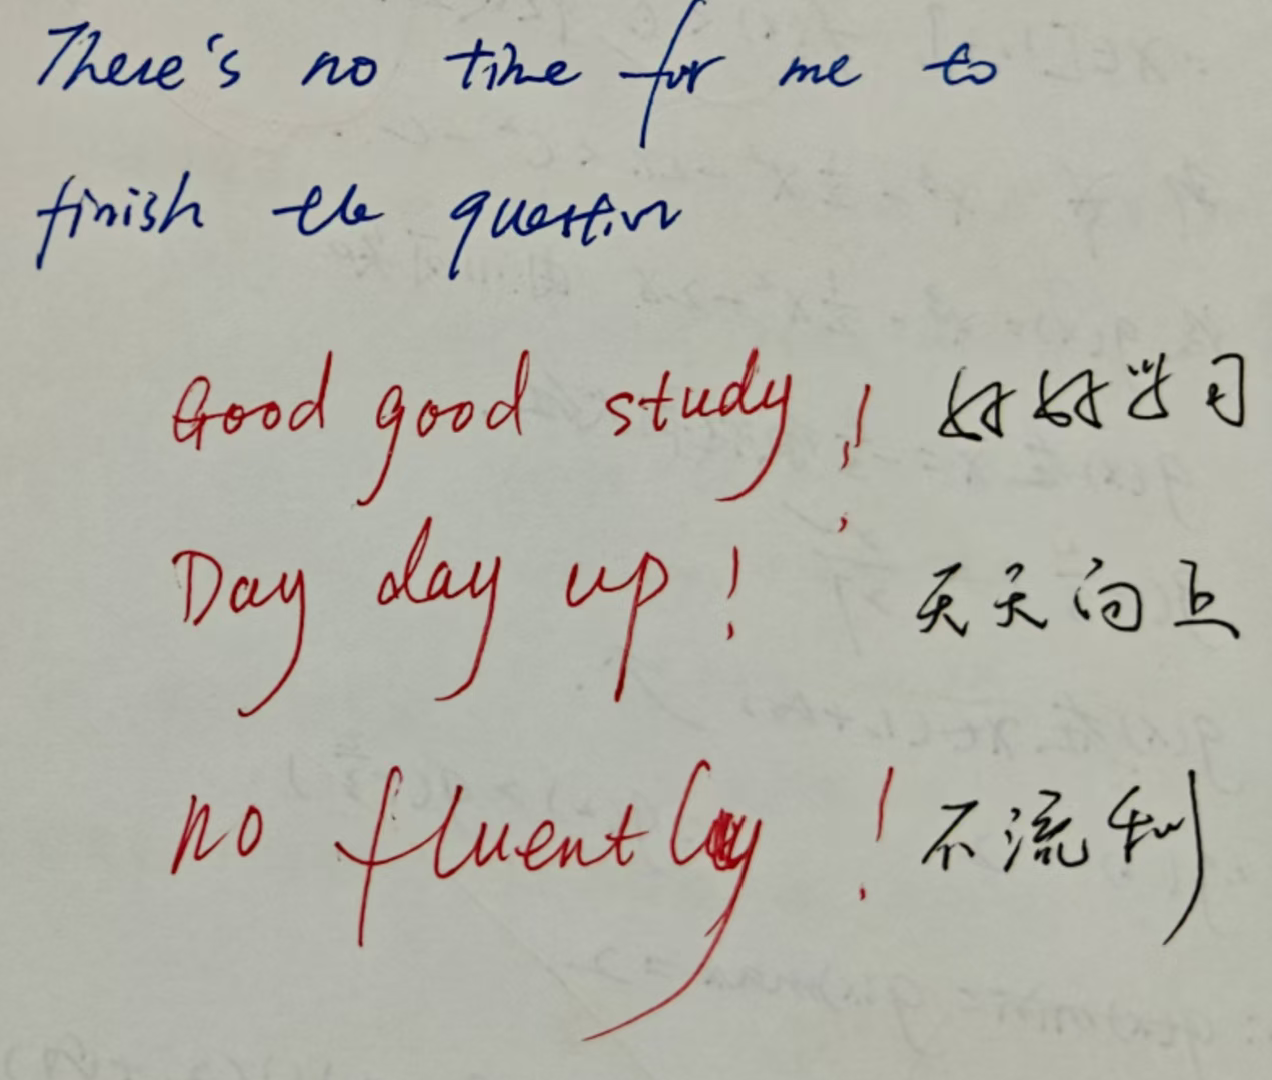 There's no time for me to
finish the question
Good good study! 好好学习
Day day up! 天天向上
no fluently! 不流利